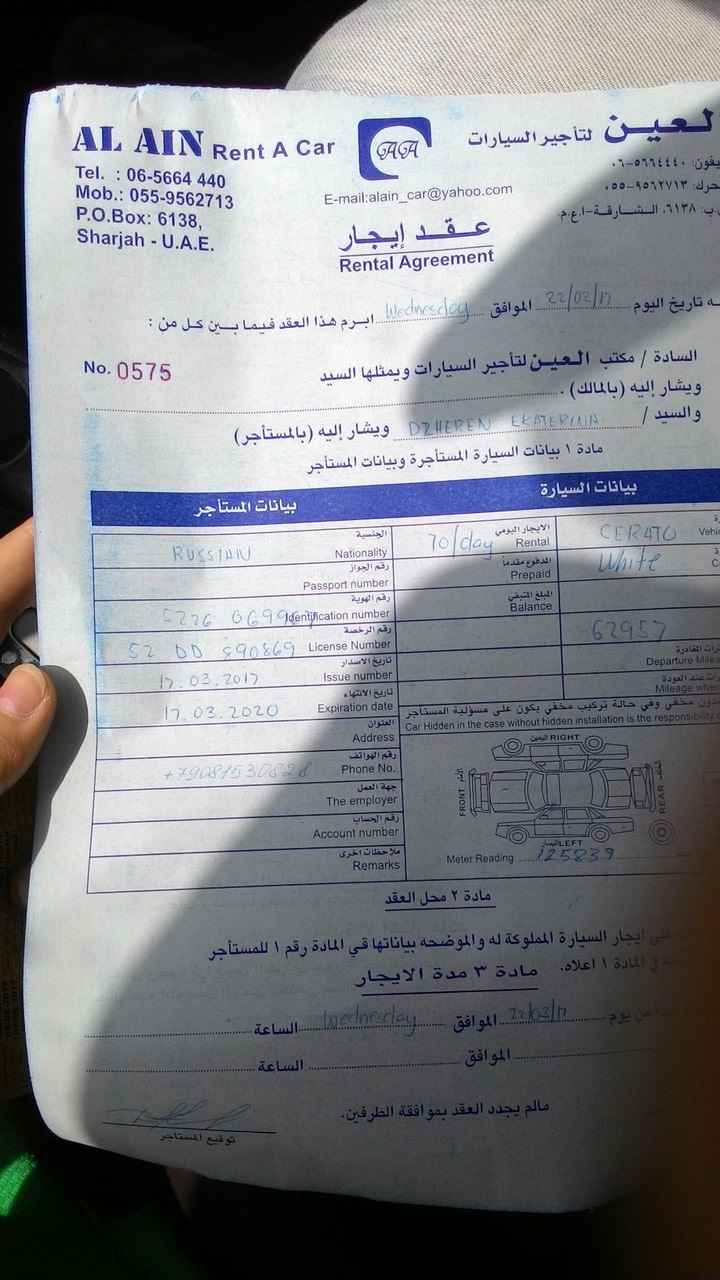 AL AIN Rent A Car
Tel. : 06-5664 440
Mob.: 055-9562713
P.O.Box: 6138,
Sharjah - U.A.E.
GAGA
E-mail:alain_car@yahoo.com
لعين لتأجير السيارات
يفون: ٥٦٦٤٤٤٠-٠٦
حرك: ٩٥٦٢٧١٣-٠٥٥
ب: ٦١٣٨، الشارقة-ا.ع.م.
عقد إيجار
Rental Agreement
ه تاريخ اليوم 22/02/17 الموافق Wednesday ابرم هذا العقد فيما بين كل من :
No. 0575
السادة / مكتب العين لتأجير السيارات ويمثلها السيد
ويشار إليه (بالمالك) .
والسيد / DZHEREN EKATERINA ويشار إليه (بالمستأجر)
مادة ١ بيانات السيارة المستأجرة وبيانات المستأجر
بيانات السيارة
بيانات المستأجر
CERATO
White
الايجار اليومي
Rental 70/day
المدفوع مقدماً
Prepaid
المبلغ المتبقي
Balance
62957
رات المغادرة
Departure Milea
رات عند العودة
Mileage whe
الجنسية
Nationality RUSSIAN
رقم الجواز
Passport number
رقم الهوية
Identification number 5226
رقم الرخصة
License Number 52 DD 890869
تاريخ الاصدار
Issue number 17.03.2017
تاريخ الانتهاء
Expiration date 17.03.2020
العنوان
Address
رقم الهواتف
Phone No. +79081530828
جهة العمل
The employer
رقم الحساب
Account number
ملاحظات اخرى
Remarks
دون مخفي وفي حالة تركيب مخفي يكون على مسؤلية المستاجر
Car Hidden in the case without hidden installation is the responsibility
اليمين RIGHT
FRONT
REAR
اليسار LEFT
Meter Reading 125839
مادة ٢ محل العقد
على ايجار السيارة المملوكة له والموضحه بياناتها في المادة رقم ١ للمستأجر
في المادة ١ اعلاه.
مادة ٣ مدة الايجار
من يوم 22/02/17 الموافق Wednesday الساعة
الموافق الساعة
مالم يجدد العقد بموافقة الطرفين.
توقيع المستاجر